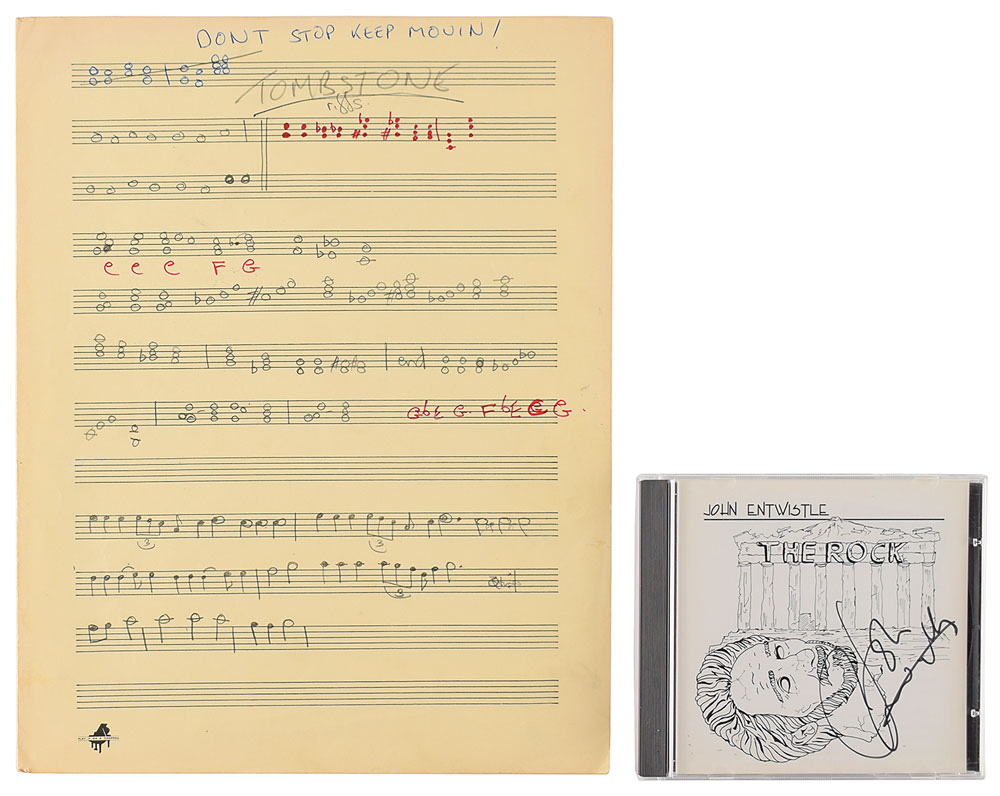 DONT STOP KEEP MOVIN!
TOMBSTONE
riffs.
e e e F G
end
GbE G. F bE C G.
3 3
3
JOHN ENTWISTLE
THE ROCK